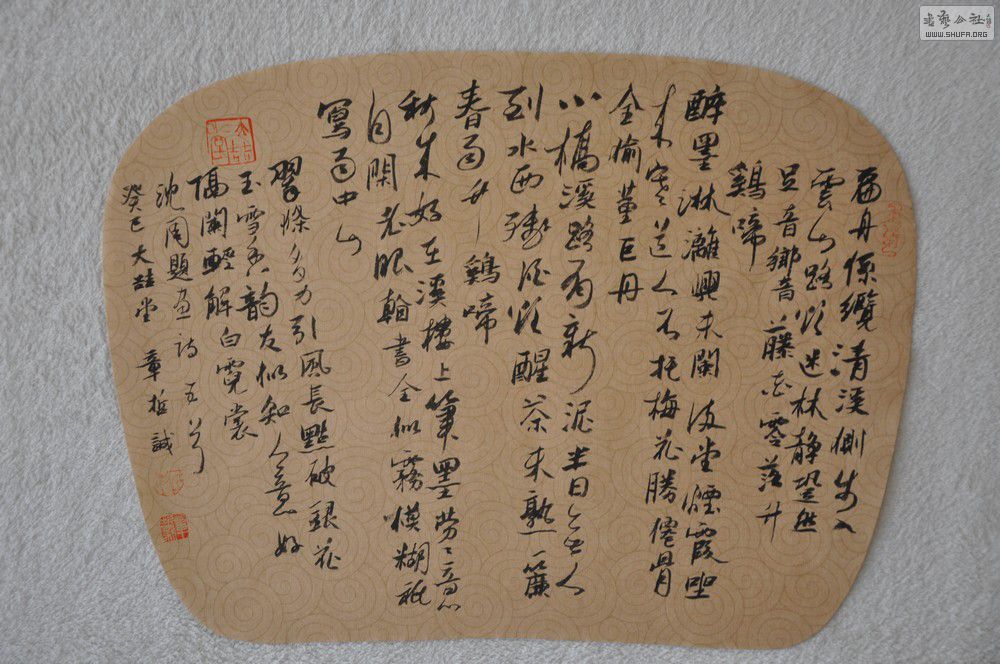 扁舟係纜清溪側步入
雲山路欲迷林静跫然
足音鄉音藤花零落午
鷄啼
醉墨淋漓興未闌 堂煙霞坐
来寒道人不托梅花勝僊骨
全偷董巨丹
小橋溪路有新泥半日無人
到水西殘酒欲醒茶未熟一簾
春雨午鷄啼
秋来好在溪樓上筆墨勞々意
自閑老眼翰書全似霧模糊祗
寫雨中山
翠條多力引風長點破銀花
玉雪香韻友似知人意好
隔闌輕解白霓裳
沈周題畫詩五首
癸巳大喆堂章哲誠
書藝公社
WWW.SHUFA.ORG